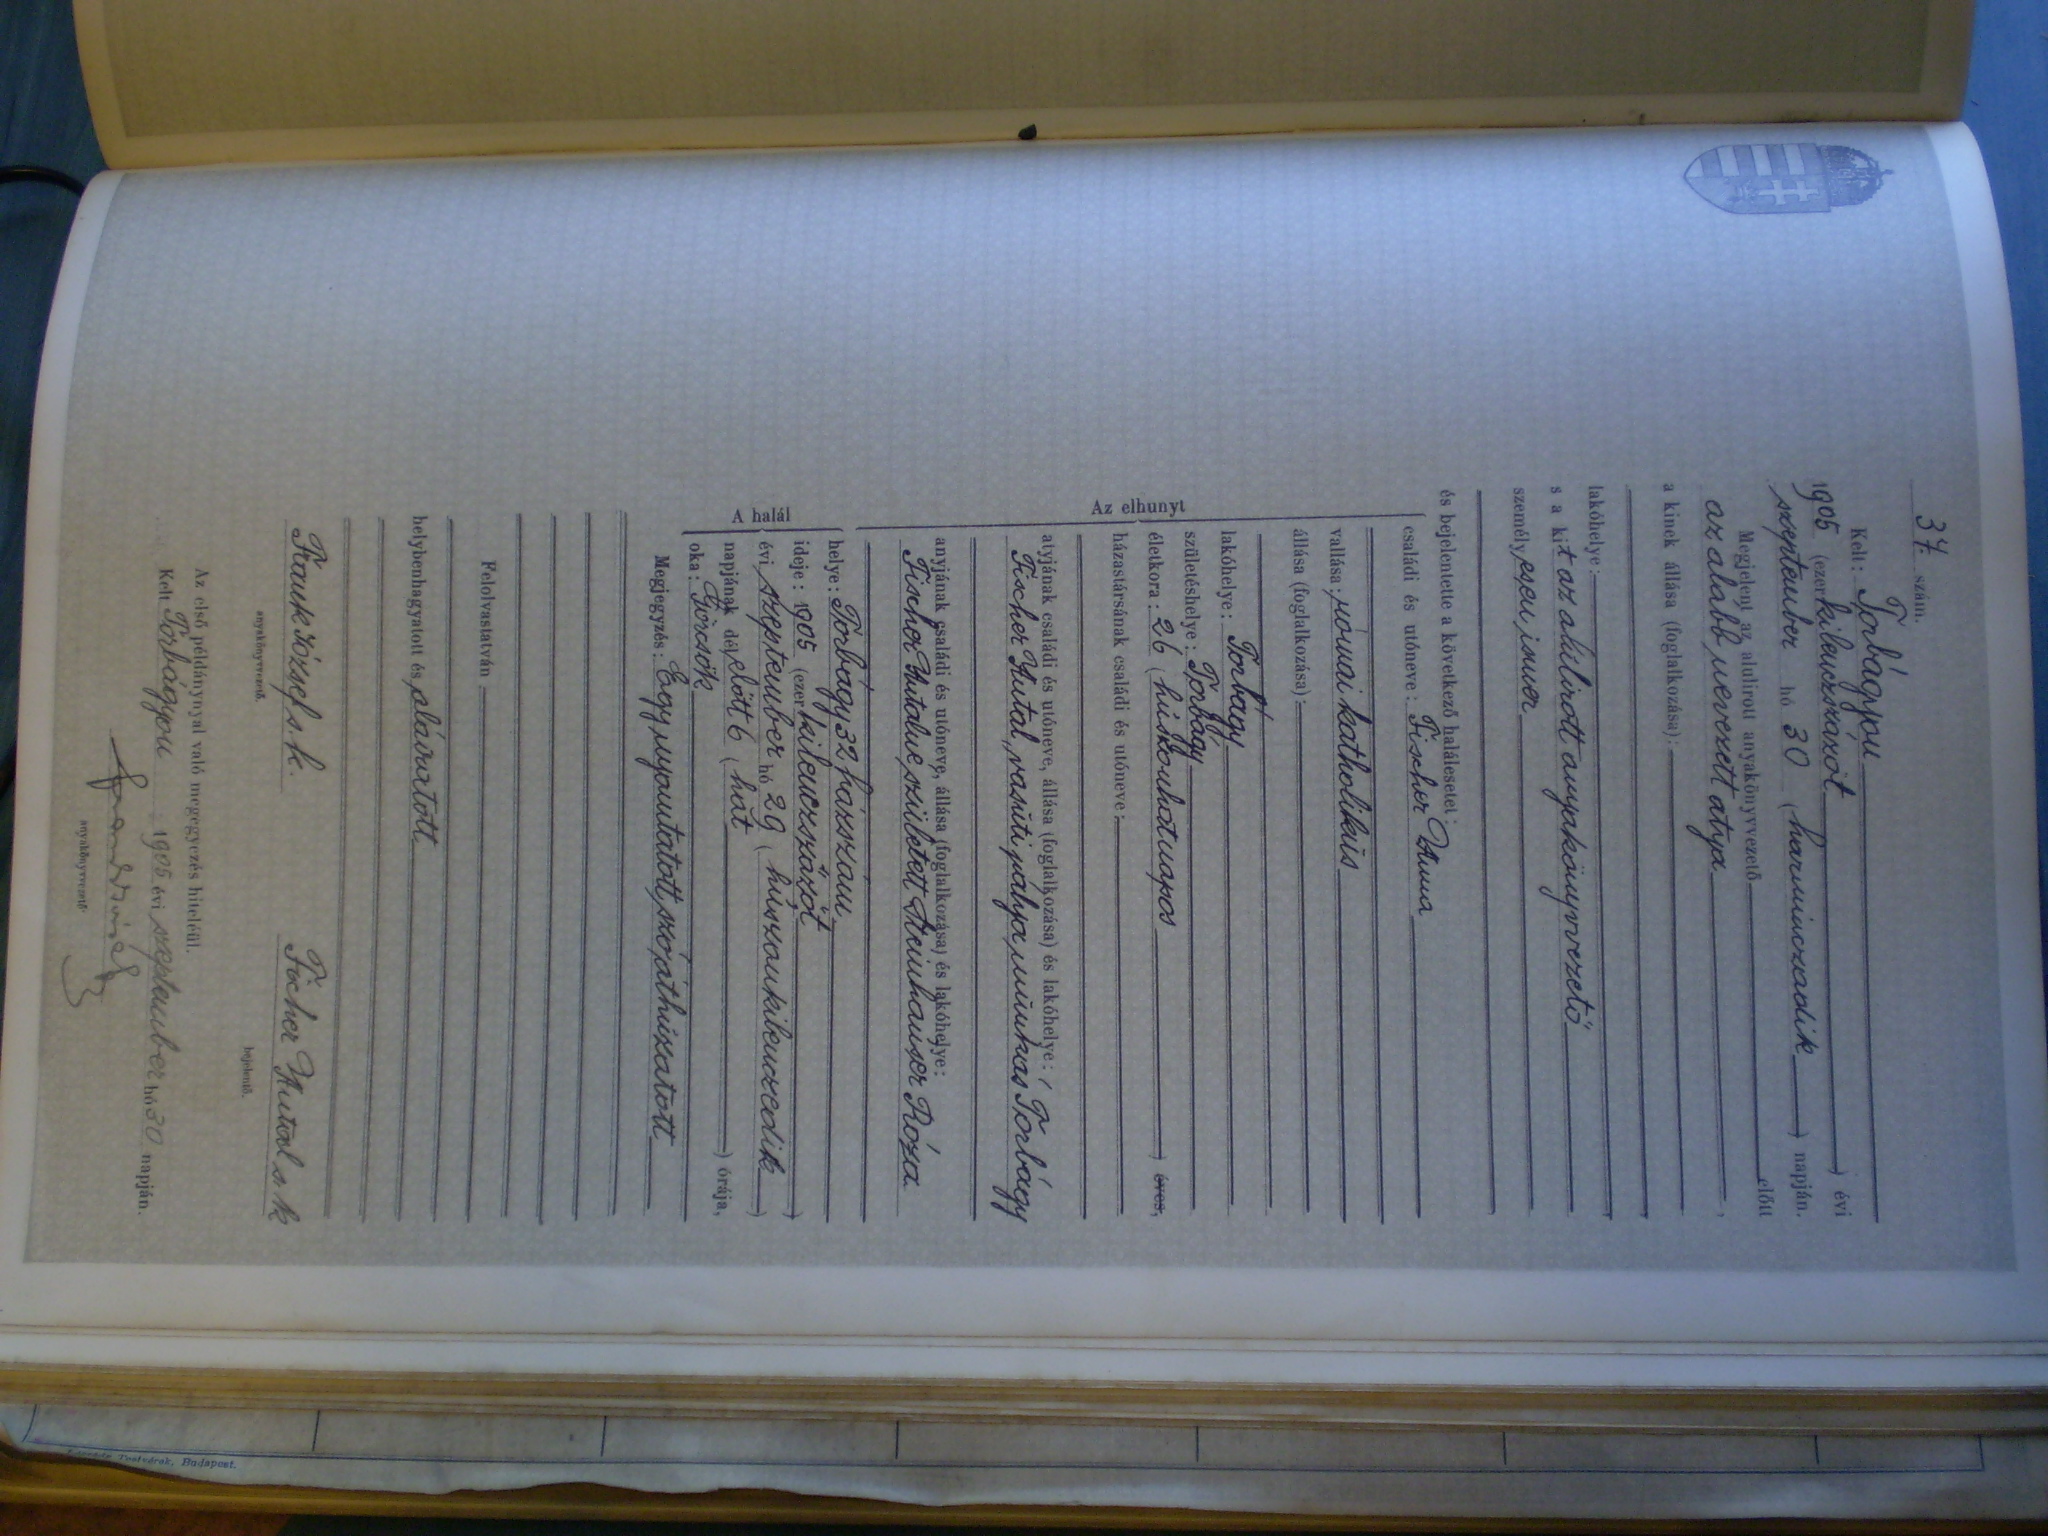 37. szám.
Kelt: Torbágyou
1905 (ezer kilenczszázöt ) évi
szeptember hó 30 (harminczadik ) napján.
Megjelent az alulirott anyakönyvvezető előtt
az alább nevezett atya ,
a kinek állása (foglalkozása):
lakóhelye:
s a kit az alulirott anyakönyvvezető
személyesen ismer
és bejelentette a következő halálesetet:
Az elhunyt
családi és utóneve: Fischer Anna
vallása: római katholikus
állása (foglalkozása):
lakóhelye: Torbágy
születéshelye: Torbágy
életkora: 26 (húszonhatnapos ) éves,
házastársának családi és utóneve:
atyjának családi és utóneve, állása (foglalkozása) és lakóhelye:
Fischer Antal, vasúti pálya munkás Torbágy
anyjának családi és utóneve, állása (foglalkozása) és lakóhelye:
Fischer Antalné született Róza
A halál
helye: Torbágy 32 házszám
ideje: 1905 (ezer kilenczszázöt )
évi szeptember hó 29 (húszonkilenczedik )
napjának délelőtt 6 (hat ) órája,
oka: Görcsök
Megjegyzés: Egy nyomtatott szó áthúzatott
Felolvastatván
helybenhagyatott és aláiratott
Frank József s. k.
anyakönyvvezető.
Ficher Antal s. k
bejelentő.
Az első példánynyal való megegyezés hiteléül.
Kelt Torbágyou 1905 évi szeptember hó 30 napján.
anyakönyvvezető.
Budapest.